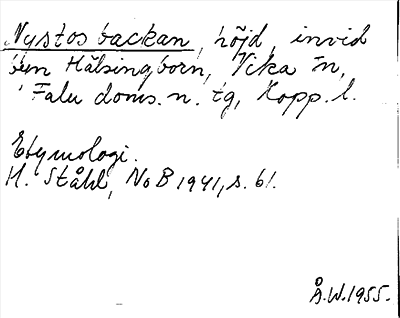 Nystosbackan, höjd, invid
byn Hälsingborn, Vika sn,
Falu doms.n. tg, Kopp. l.
Etymologi.
H. Ståhl, NoB 1941, s. 61.
Å.W. 1955.